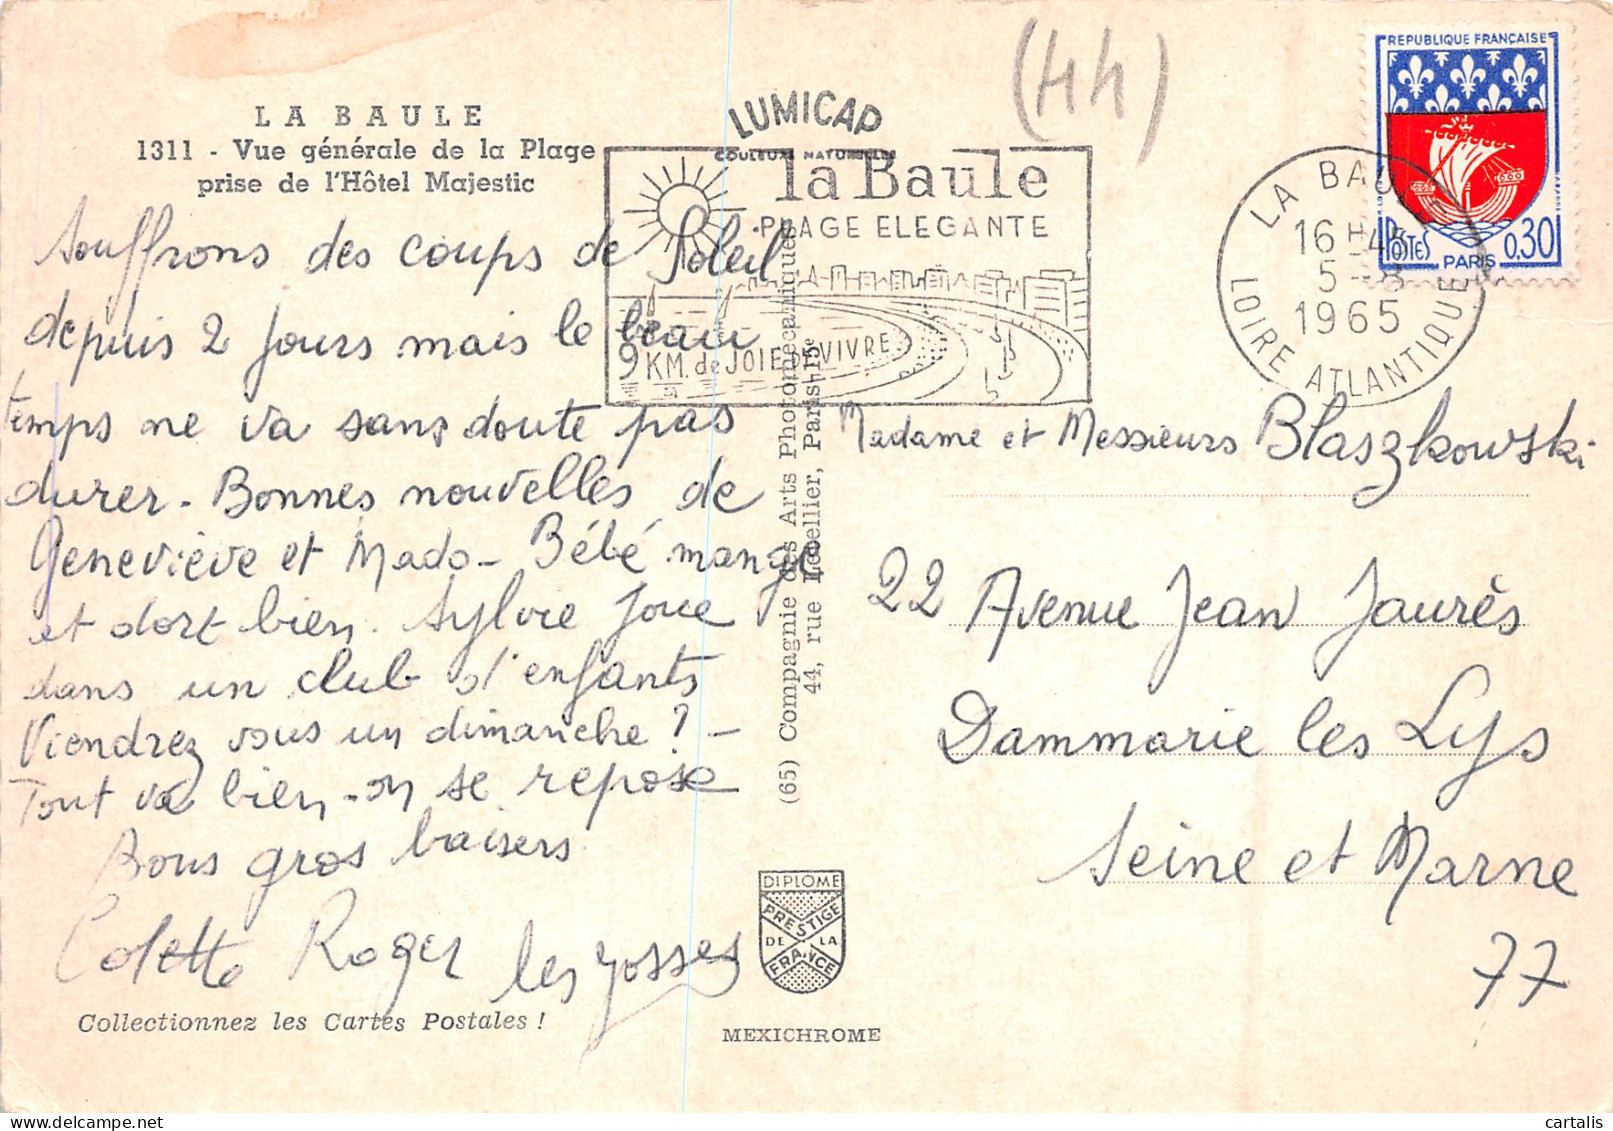 (44)
LA BAULE
1311 - Vue générale de la Plage
prise de l'Hôtel Majestic
LUMICAP
COULEURS NATURELLES
la Baule
PLAGE ELEGANTE
9 KM. de JOIE de VIVRE
LA BAULE
16 H 45
5 - 8
1965
LOIRE ATLANTIQUE
REPUBLIQUE FRANÇAISE
POSTES
0,30
PARIS
Souffrons des coups de Soleil
depuis 2 jours mais le beau
temps ne va sans doute pas
durer - Bonnes nouvelles de
Geneviève et Mado - Bébé mange
et dort bien. Sylvie joue
dans un club d'enfants
Viendrez vous un dimanche ? -
Tout va bien - on se repose
Bons gros baisers
Colette Roger les gosses
Collectionnez les Cartes Postales !
(65) Compagnie des Arts Photomécaniques
44, rue Letellier, Paris-15e
DIPLOME
PRESTIGE
DE LA
FRANCE
MEXICHROME
Madame et Messieurs Blaszkowski
22 Avenue Jean Jaurès
Dammarie les Lys
Seine et Marne
77
cartalis
www.delcampe.net